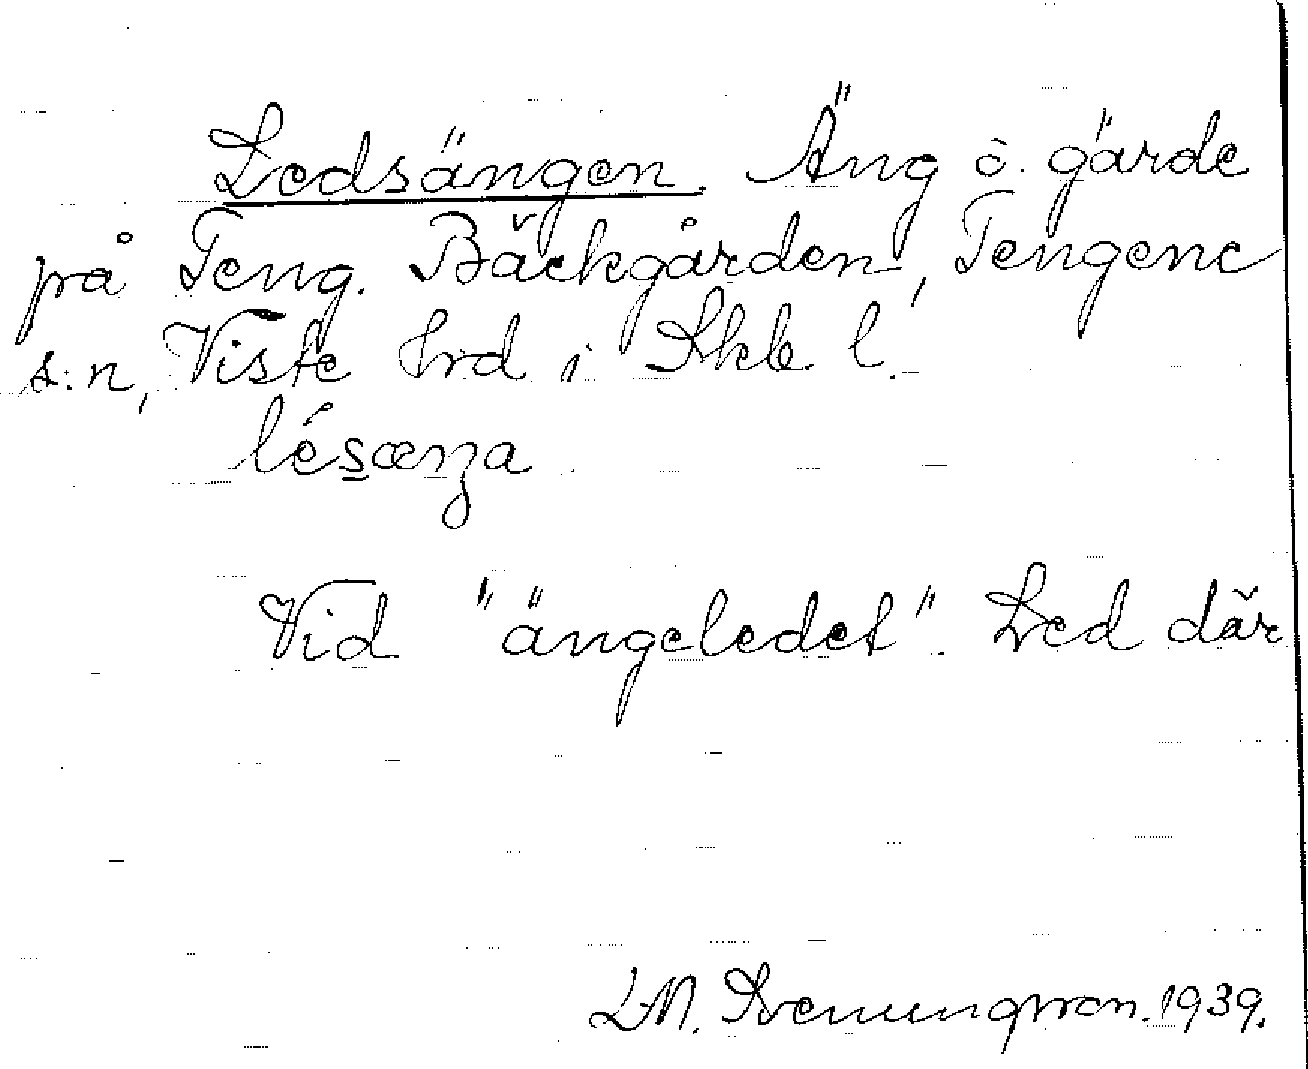 Ledsängen. Äng ö. gärde
på Teng. Bäckgården, Tengene
s:n, Viste hrd i Skb. l.
lésæŋa
Vid "ängeledet". Led där
1939.